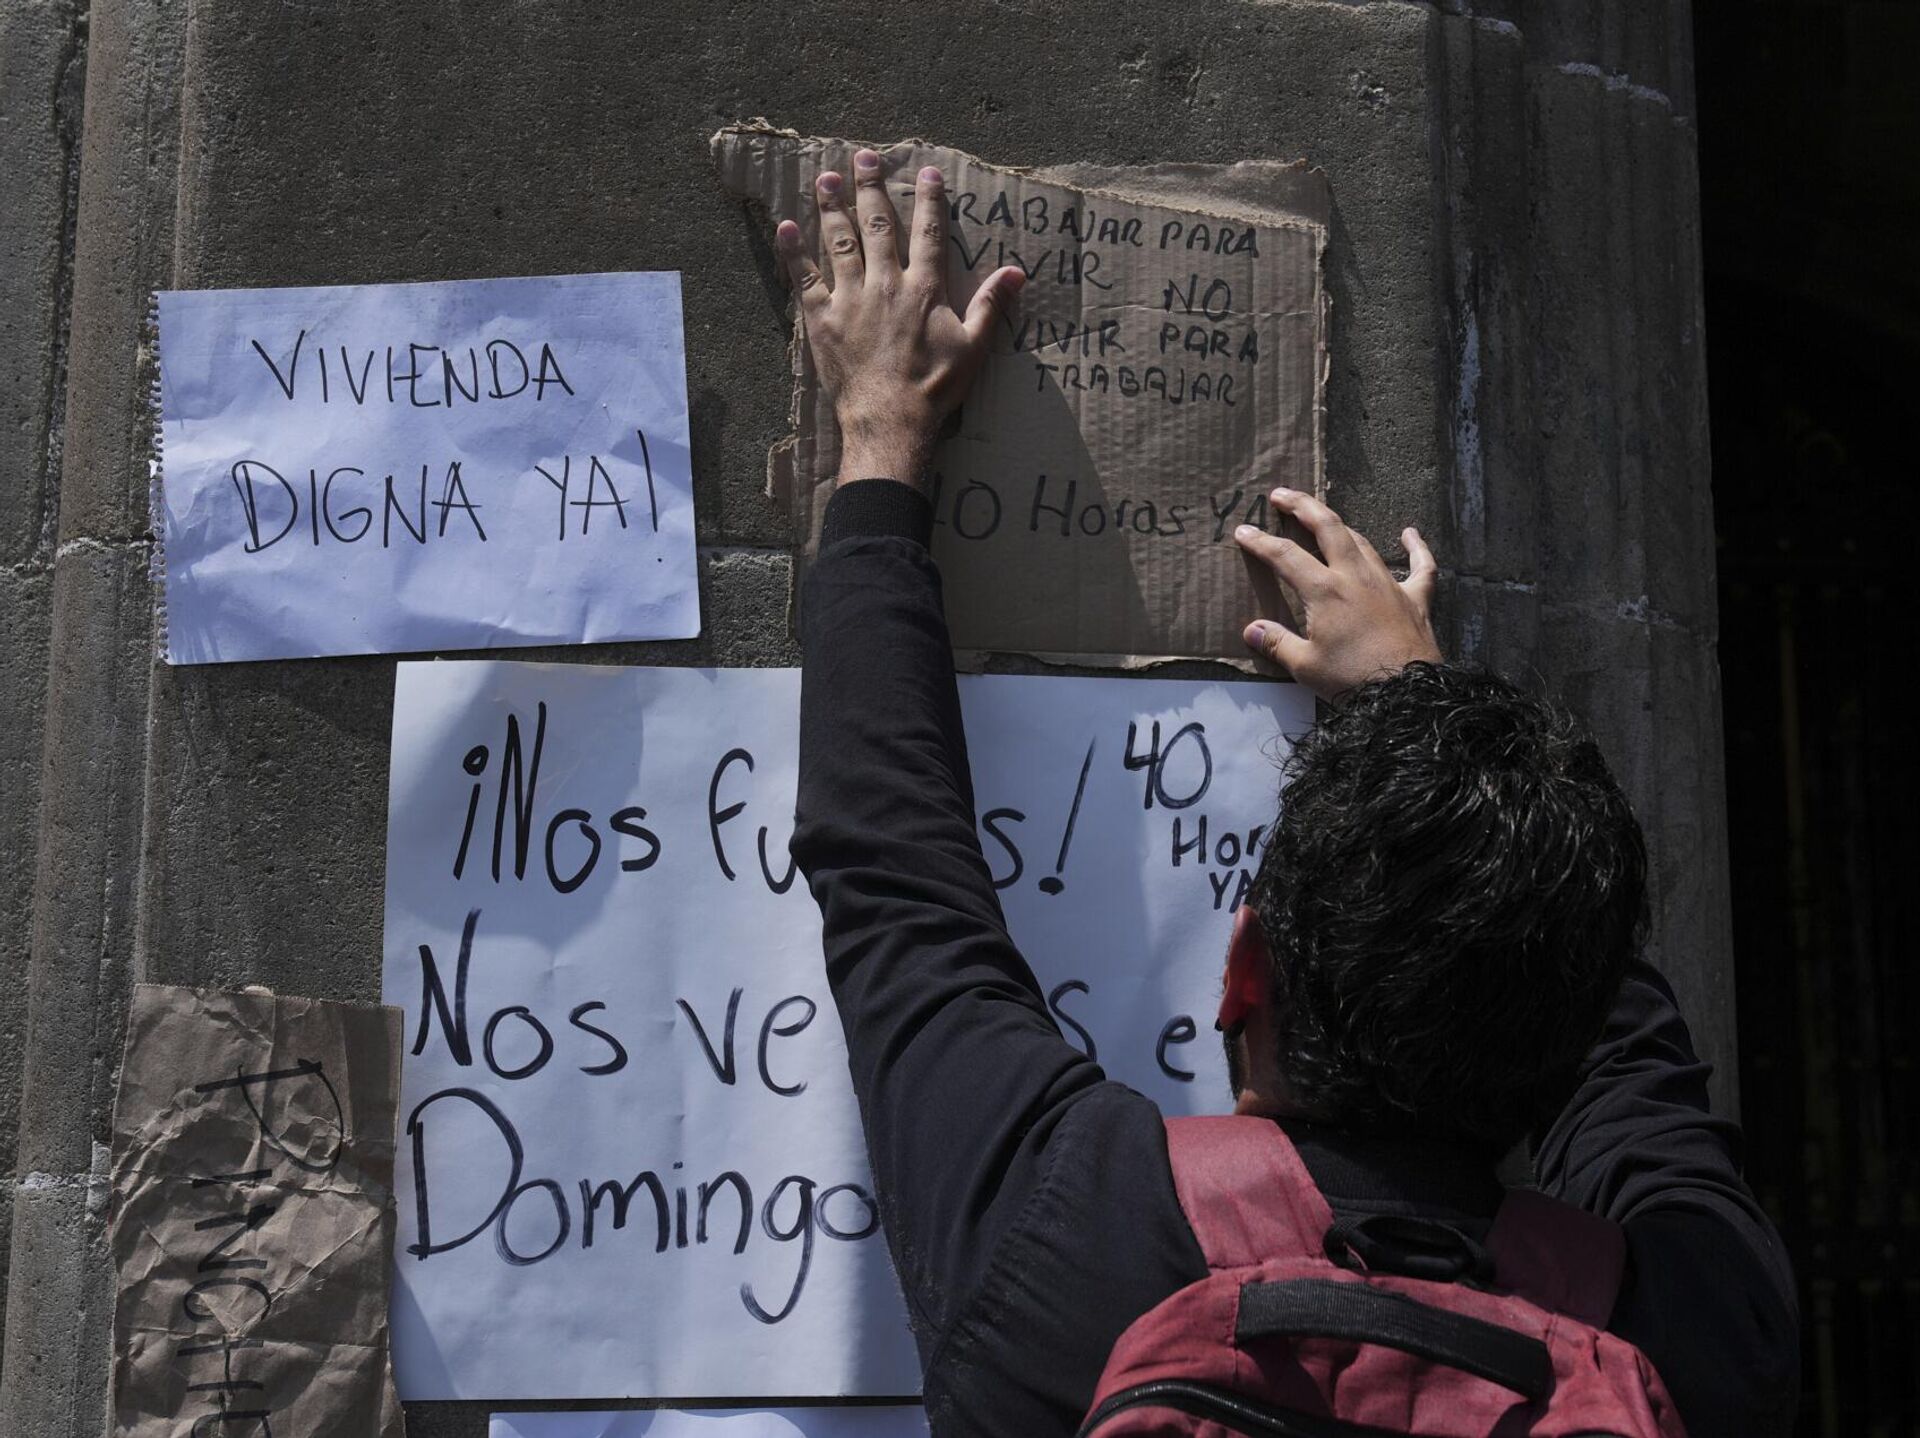 VIVIENDA
DIGNA YA!
TRABAJAR PARA
VIVIR NO
VIVIR PARA
TRABAJAR
40 Horas YA
¡Nos !
40
YA
Nos
Domingo
PINCHE